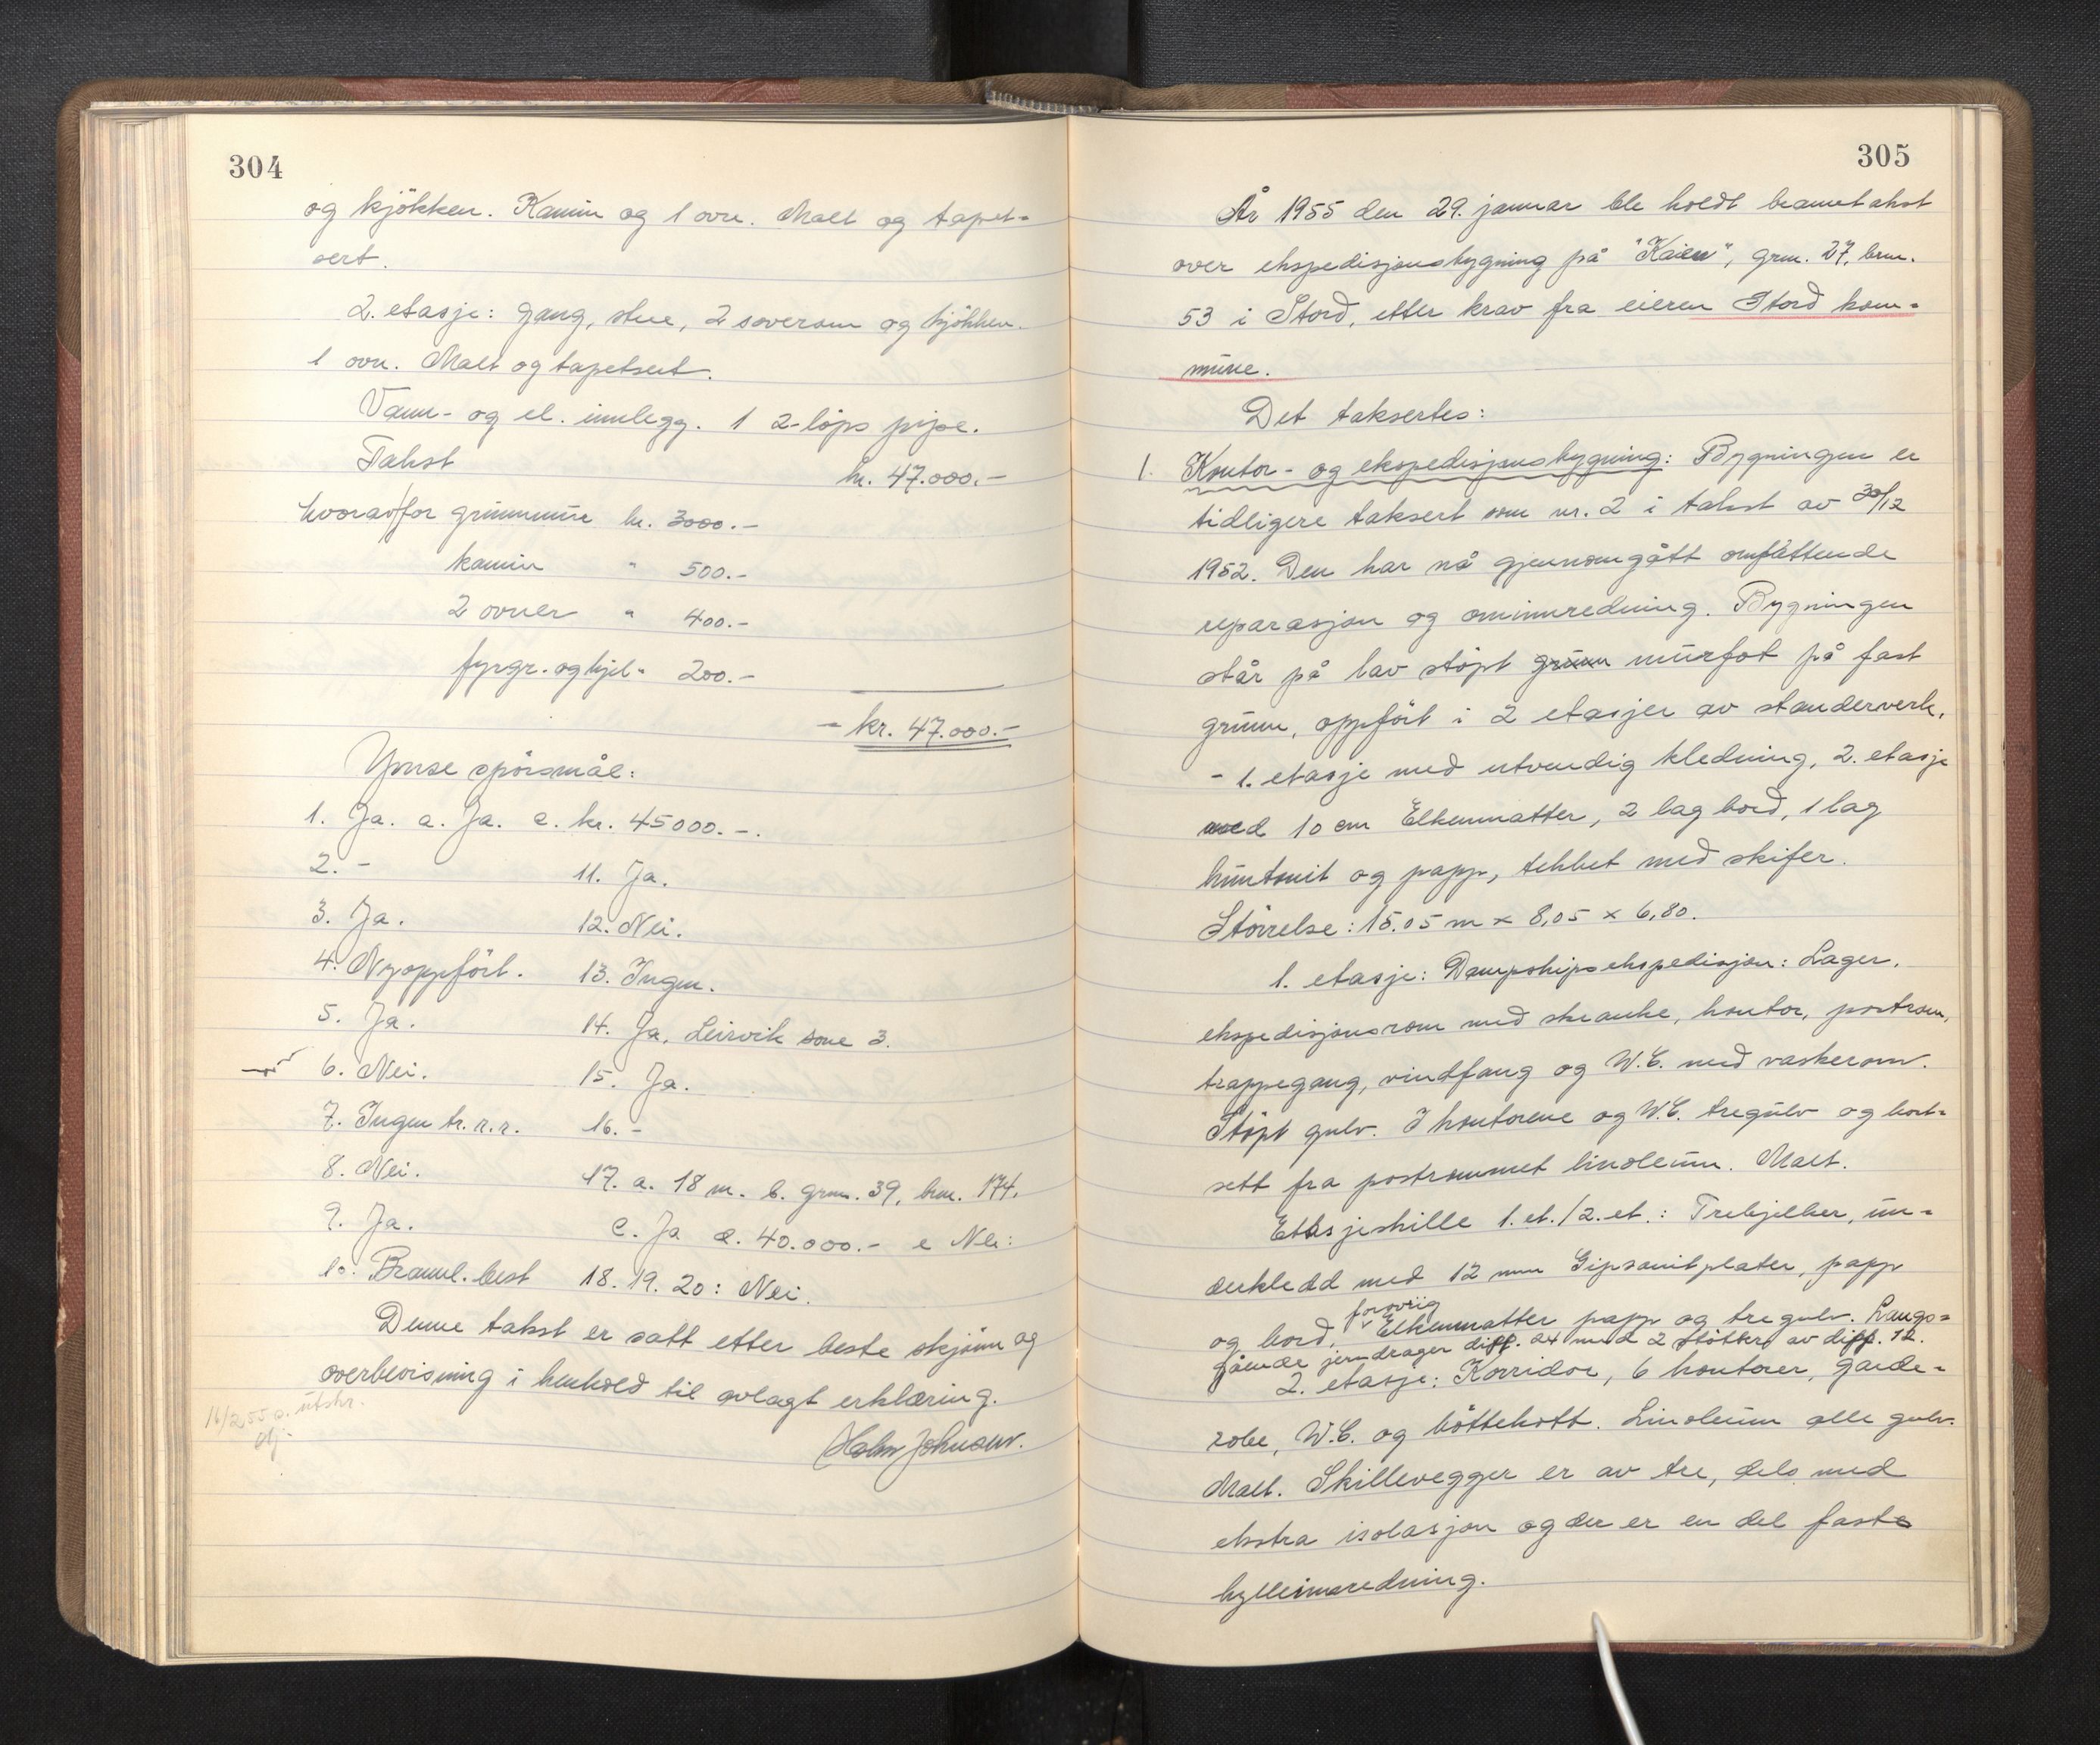 304
og kjökken. Kamin og 1 ovn. Malt og tapet=
sert.
2. etasje: gang, stue, 2 soverom og kjökken.
1 ovn. Malt og tapetsert.
Vann- og el. innlegg. 1 2-löps pipe.
Takst kr. 47.000.-
hvorav for grunnmur kr. 3000.-
kamin " 500.-
2 ovner " 400.-
fyrgr. og kjel " 200.-
- kr. 47.000.-
Ymse spörsmål:
1. Ja. a. Ja. c. kr. 45000.-.
2. - 11. Ja.
3. Ja. 12. Nei.
4. Nyoppfört. 13. Ingen.
5. Ja. 14. Ja, Leirvik sone 3.
6. Nei. 15. Ja.
7. Ingen tr. r. r. 16. -
8. Nei. 17. a. 18 m. b. grnr. 39, bnr. 174.
9. Ja. c. Ja d. 40.000.- e Nei:
10. Brannl. best 18. 19. 20: Nei.
Denne takst er satt etter beste skjönn og
overbevisning i henhold til avlagt erklæring.
16/2 55 a. utskr.
Holm Johnsen.
305
År 1955 den 29. januar ble holdt branntakst
over ekspedisjonsbygning på "Kaien", grnr. 27, bnr.
53 i Stord, etter krav fra eieren Stord kom=
mune.
Det taksertes:
1. Kontor- og ekspedisjonsbygning: Bygningen er
tidligere taksert som nr. 2 i takst av 30/12
1952. Den har nå gjennomgått omfattende
reparasjon og ominnredning. Bygningen
står på lav stöpt grunn murfot på fast
grunn, oppfört i 2 etasjer av standerverk,
- 1. etasje med utvendig kledning, 2. etasje
med 10 cm Elkenmatter, 2 lag bord, 1 lag
huntonit og papp, tekket med skifer.
Störrelse: 15.05 m x 8,05 x 6,80.
1. etasje: Dampskipsekspedisjon: Lager,
ekspedisjonsrom med skranke, kontor, postrom,
trappegang, vindfang og W.C. med vaskerom.
Stöpt gulv. I kontorene og W.C. tregulv og bort=
sett fra postrommet linoleum. Malt.
Etasjeskille 1. et./2. et.: Trebjelker, un=
derkledd med 12 mm Gipsonitplater, papp
og bord, forövrig Elkenmatter papp og tregulv. Langs=
gående jerndrager diff. 24 med 2 stötter av diff. 12.
2. etasje: Korridor, 6 kontorer, garde=
robe, W.C. og böttekott. Linoleum alle gulv.
Malt. Skillevegger er av tre, dels med
ekstra isolasjon og der er en del faste
hylleinnredning.